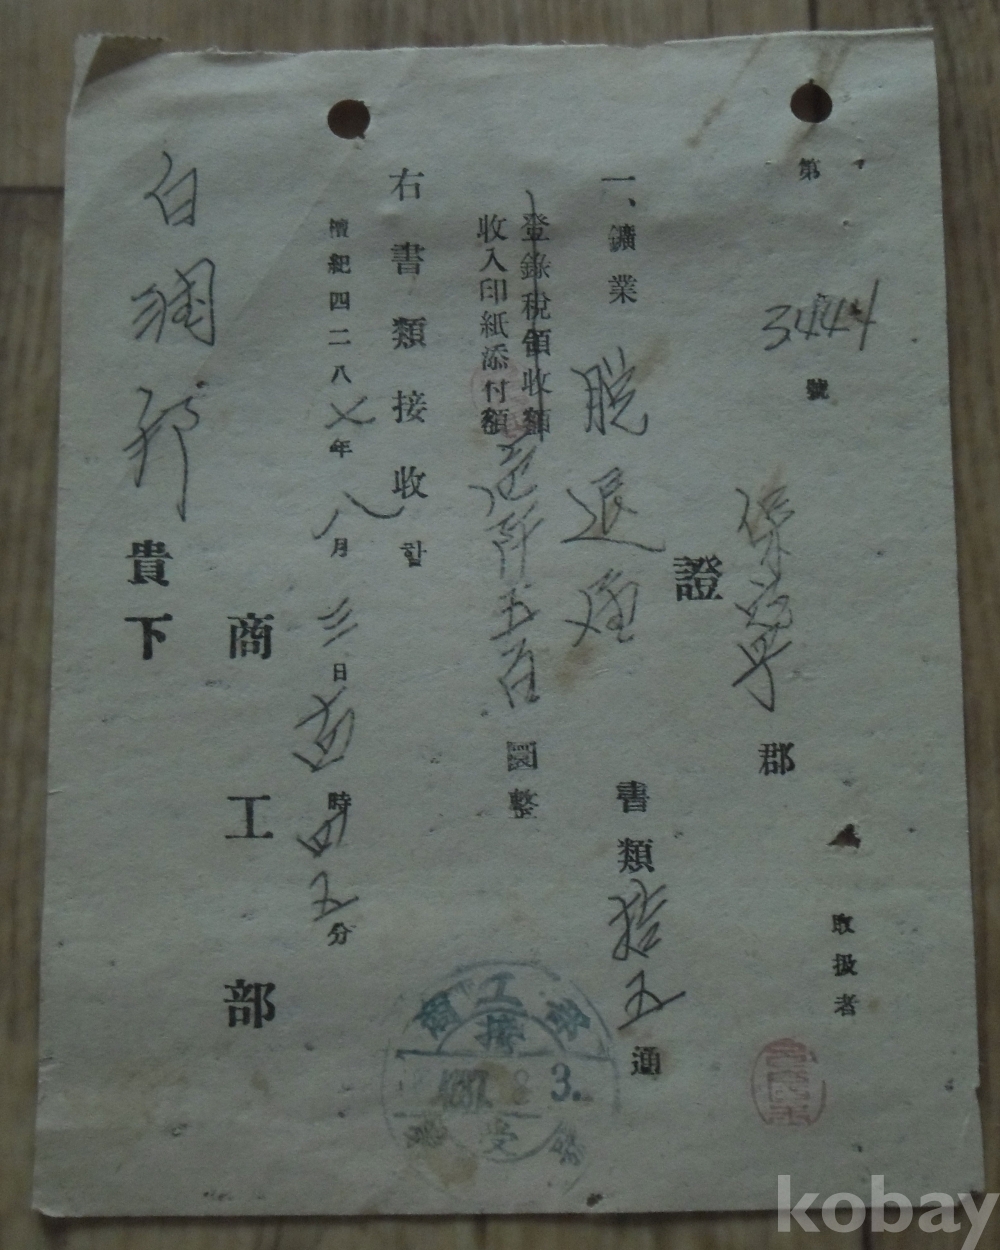 第 3444 號
取扱者
郡
證
一、鑛業 脫退 書類 拾五 通
登錄稅領收額
收入印紙添付額 五百 圜整
右書類接收함
檀紀四二八七年 八月 三日 時 五分
商工部
白潤 貴下
商工部
接
4287. 8 3.
受
kobay